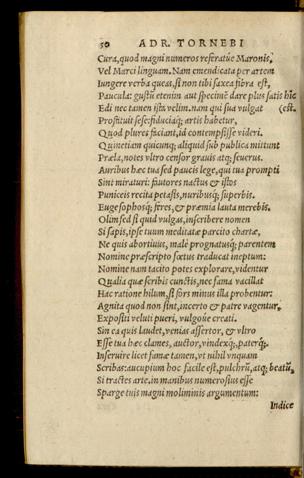 50 ADR. TORNEBI
Cura, quod magni numeros referatúe Maronis,
Vel Marci linguam. Nam emendicata per artem
Iungere verba queas, si non tibi saxea fibra est,
Paucula: gustū etenim aut specimē dare plus satis hîc
Edi nec tamen ista velim. nam qui sua vulgat (est.
Prostituit sese: fiduciáq; artis habetur,
Quod plures faciant, id contempsisse videri.
Quinetiam quicunq; aliquid sub publica mittunt
Præla, notes vltro censor grauis atq; seuerus.
Auribus hæc tua sed paucis lege, qui tua prompti
Sint miraturi: fautores nactus & istos
Puniceis recita petasis, nuribusq; superbis.
Euge sophosq; feres, & præmia lauta merebis.
Olim sed si quid vulgas, inscribere nomen
Si sapis, ipse tuum meditatæ parcito chartæ,
Ne quis abortiuus, malè prognatusq; parentem
Nomine præscripto fœtus traducat ineptum:
Nomine nam tacito potes explorare, videntur
Qualia quæ scribis cunctis, nec fama vacillat
Hac ratione hilum, si fors minus illa probentur:
Agnita quod non sint, incerto & patre vagentur,
Expositi veluti pueri, vulgoúe creati.
Sin ea quis laudet, venias assertor, & vltro
Esse tua hæc clames, auctor, vindexq;, paterq;.
Inseruire licet famæ tamen, vt nihil vnquam
Scribas: aucupium hoc facile est, pulchrū, atq; beatū.
Si tractes arte, in manibus numerosius esse
Sparge tuis magni moliminis argumentum:
Indice